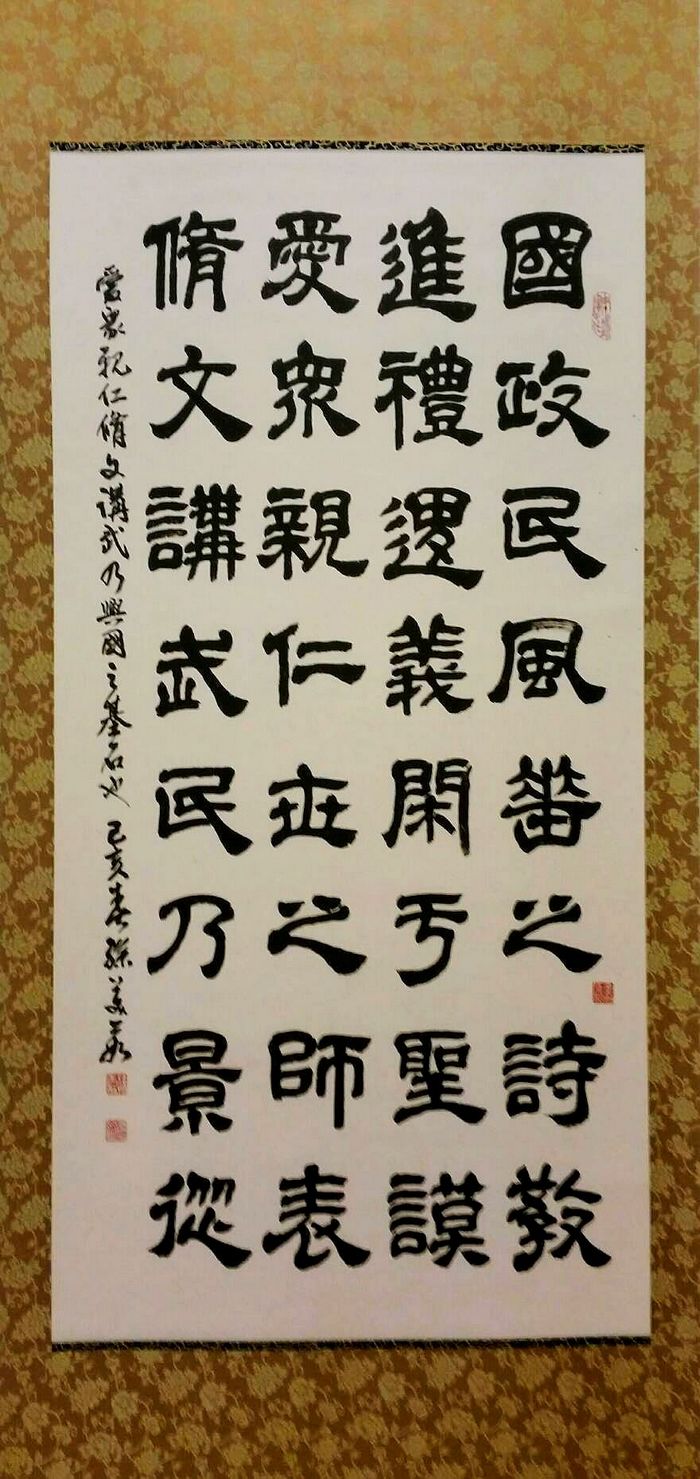 國政民風之詩教
進禮退義閑于聖謨
愛眾親仁世之師表
脩文講武民乃景從
愛眾親仁脩文講武乃興國之基石也 己亥春孫美